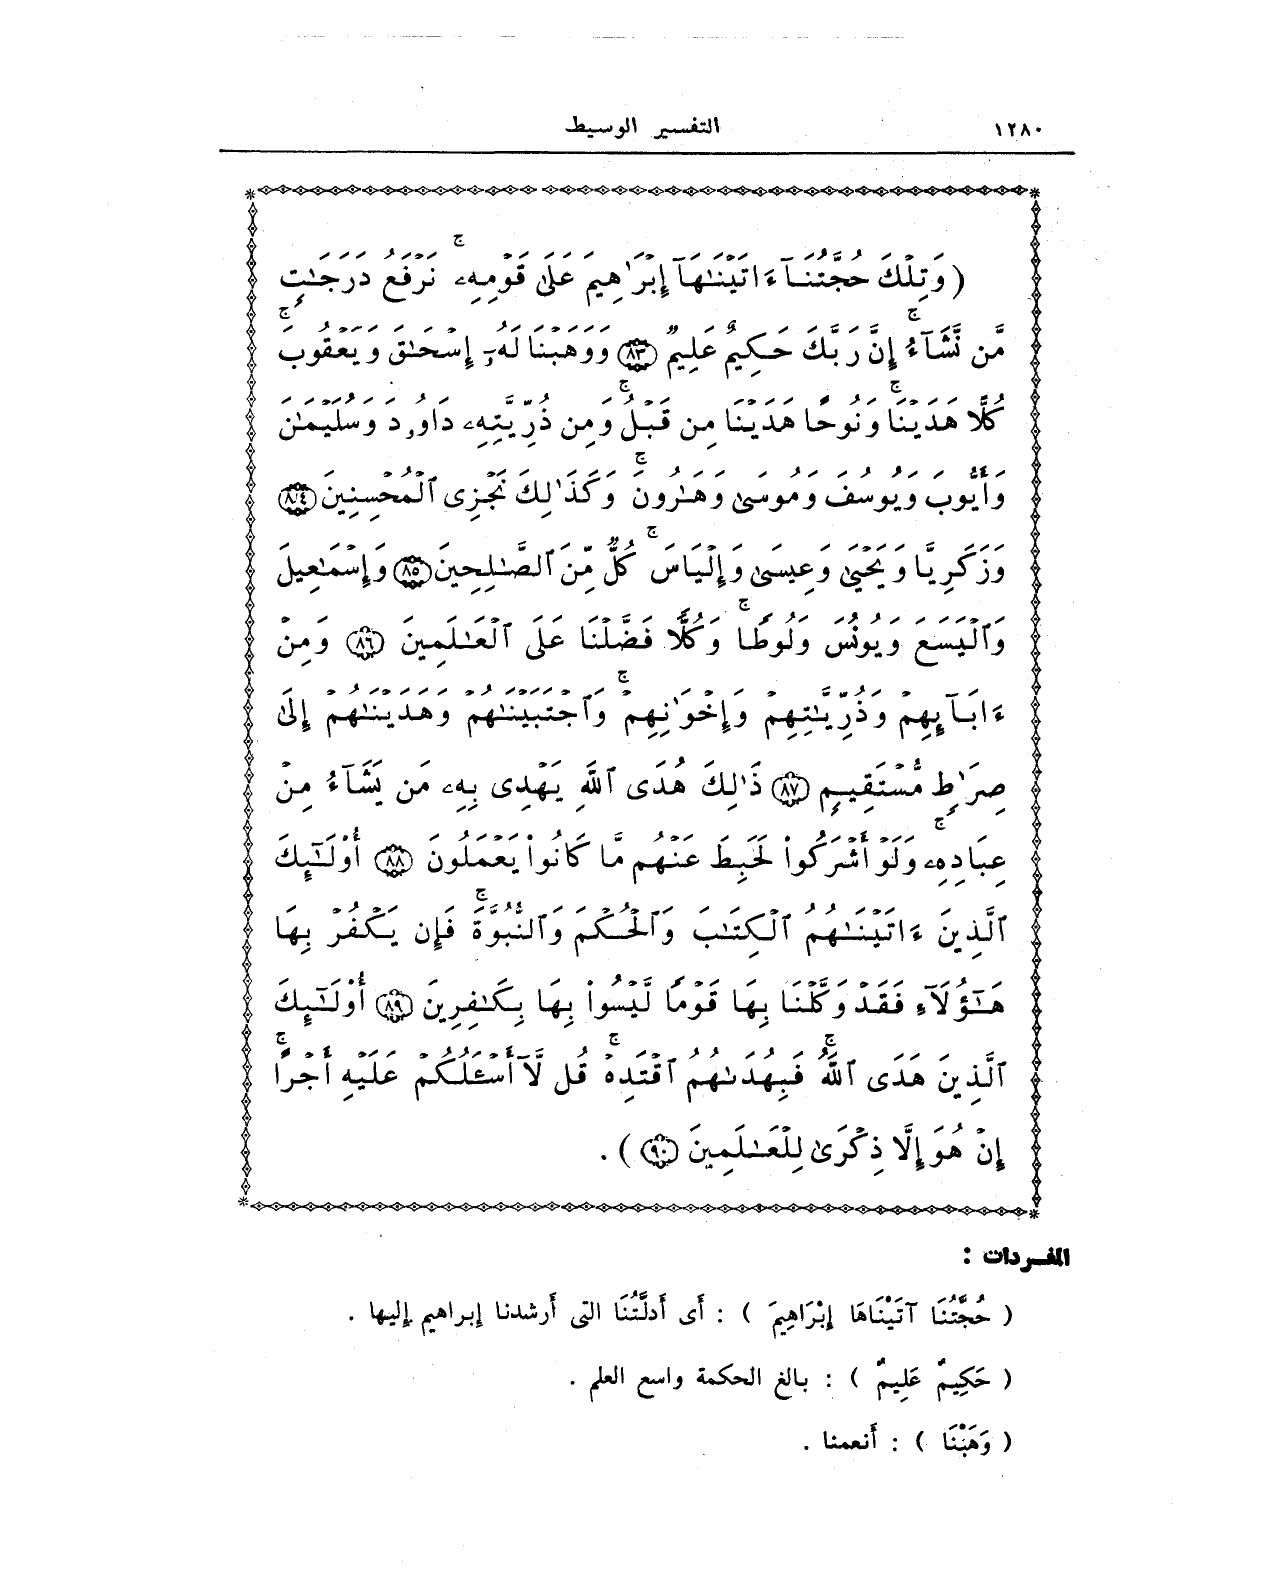 ١٢٨٠
التفسير الوسيط
( وَتِلْكَ حُجَّتُنَآ ءَاتَيْنَٰهَآ إِبْرَٰهِيمَ عَلَىٰ قَوْمِهِۦ ۚ نَرْفَعُ دَرَجَٰتٍ
مَّن نَّشَآءُ ۗ إِنَّ رَبَّكَ حَكِيمٌ عَلِيمٌ ﴿٨٣﴾ وَوَهَبْنَا لَهُۥٓ إِسْحَٰقَ وَيَعْقُوبَ ۚ
كُلًّا هَدَيْنَا ۚ وَنُوحًا هَدَيْنَا مِن قَبْلُ ۖ وَمِن ذُرِّيَّتِهِۦ دَاوُۥدَ وَسُلَيْمَٰنَ
وَأَيُّوبَ وَيُوسُفَ وَمُوسَىٰ وَهَٰرُونَ ۚ وَكَذَٰلِكَ نَجْزِى ٱلْمُحْسِنِينَ ﴿٨٤﴾
وَزَكَرِيَّا وَيَحْيَىٰ وَعِيسَىٰ وَإِلْيَاسَ ۖ كُلٌّ مِّنَ ٱلصَّٰلِحِينَ ﴿٨٥﴾ وَإِسْمَٰعِيلَ
وَٱلْيَسَعَ وَيُونُسَ وَلُوطًا ۚ وَكُلًّا فَضَّلْنَا عَلَى ٱلْعَٰلَمِينَ ﴿٨٦﴾ وَمِنْ
ءَابَآئِهِمْ وَذُرِّيَّٰتِهِمْ وَإِخْوَٰنِهِمْ ۖ وَٱجْتَبَيْنَٰهُمْ وَهَدَيْنَٰهُمْ إِلَىٰ
صِرَٰطٍ مُّسْتَقِيمٍ ﴿٨٧﴾ ذَٰلِكَ هُدَى ٱللَّهِ يَهْدِى بِهِۦ مَن يَشَآءُ مِنْ
عِبَادِهِۦ ۚ وَلَوْ أَشْرَكُوا۟ لَحَبِطَ عَنْهُم مَّا كَانُوا۟ يَعْمَلُونَ ﴿٨٨﴾ أُو۟لَٰٓئِكَ
ٱلَّذِينَ ءَاتَيْنَٰهُمُ ٱلْكِتَٰبَ وَٱلْحُكْمَ وَٱلنُّبُوَّةَ ۚ فَإِن يَكْفُرْ بِهَا
هَٰٓؤُلَآءِ فَقَدْ وَكَّلْنَا بِهَا قَوْمًا لَّيْسُوا۟ بِهَا بِكَٰفِرِينَ ﴿٨٩﴾ أُو۟لَٰٓئِكَ
ٱلَّذِينَ هَدَى ٱللَّهُ ۖ فَبِهُدَىٰهُمُ ٱقْتَدِهْ ۗ قُل لَّآ أَسْـَٔلُكُمْ عَلَيْهِ أَجْرًا ۖ
إِنْ هُوَ إِلَّا ذِكْرَىٰ لِلْعَٰلَمِينَ ﴿٩٠﴾ ) .
المفـردات :
( حُجَّتُنَا آتَيْنَاهَا إِبْرَاهِيمَ ) : أَى أَدلَّتُنَا التى أَرشدنا إبراهيم إليها .
( حَكِيمٌ عَلِيمٌ ) : بالغ الحكمة واسع العلم .
( وَهَبْنَا ) : أَنعمنا .